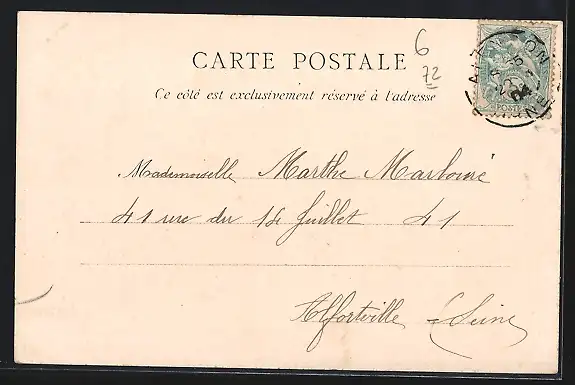 CARTE POSTALE
Ce côté est exclusivement réservé à l'adresse
6
72
ALENÇON
POSTES
Mademoiselle Marthe
41 rue du 14 Juillet 41
Alfortville Seine